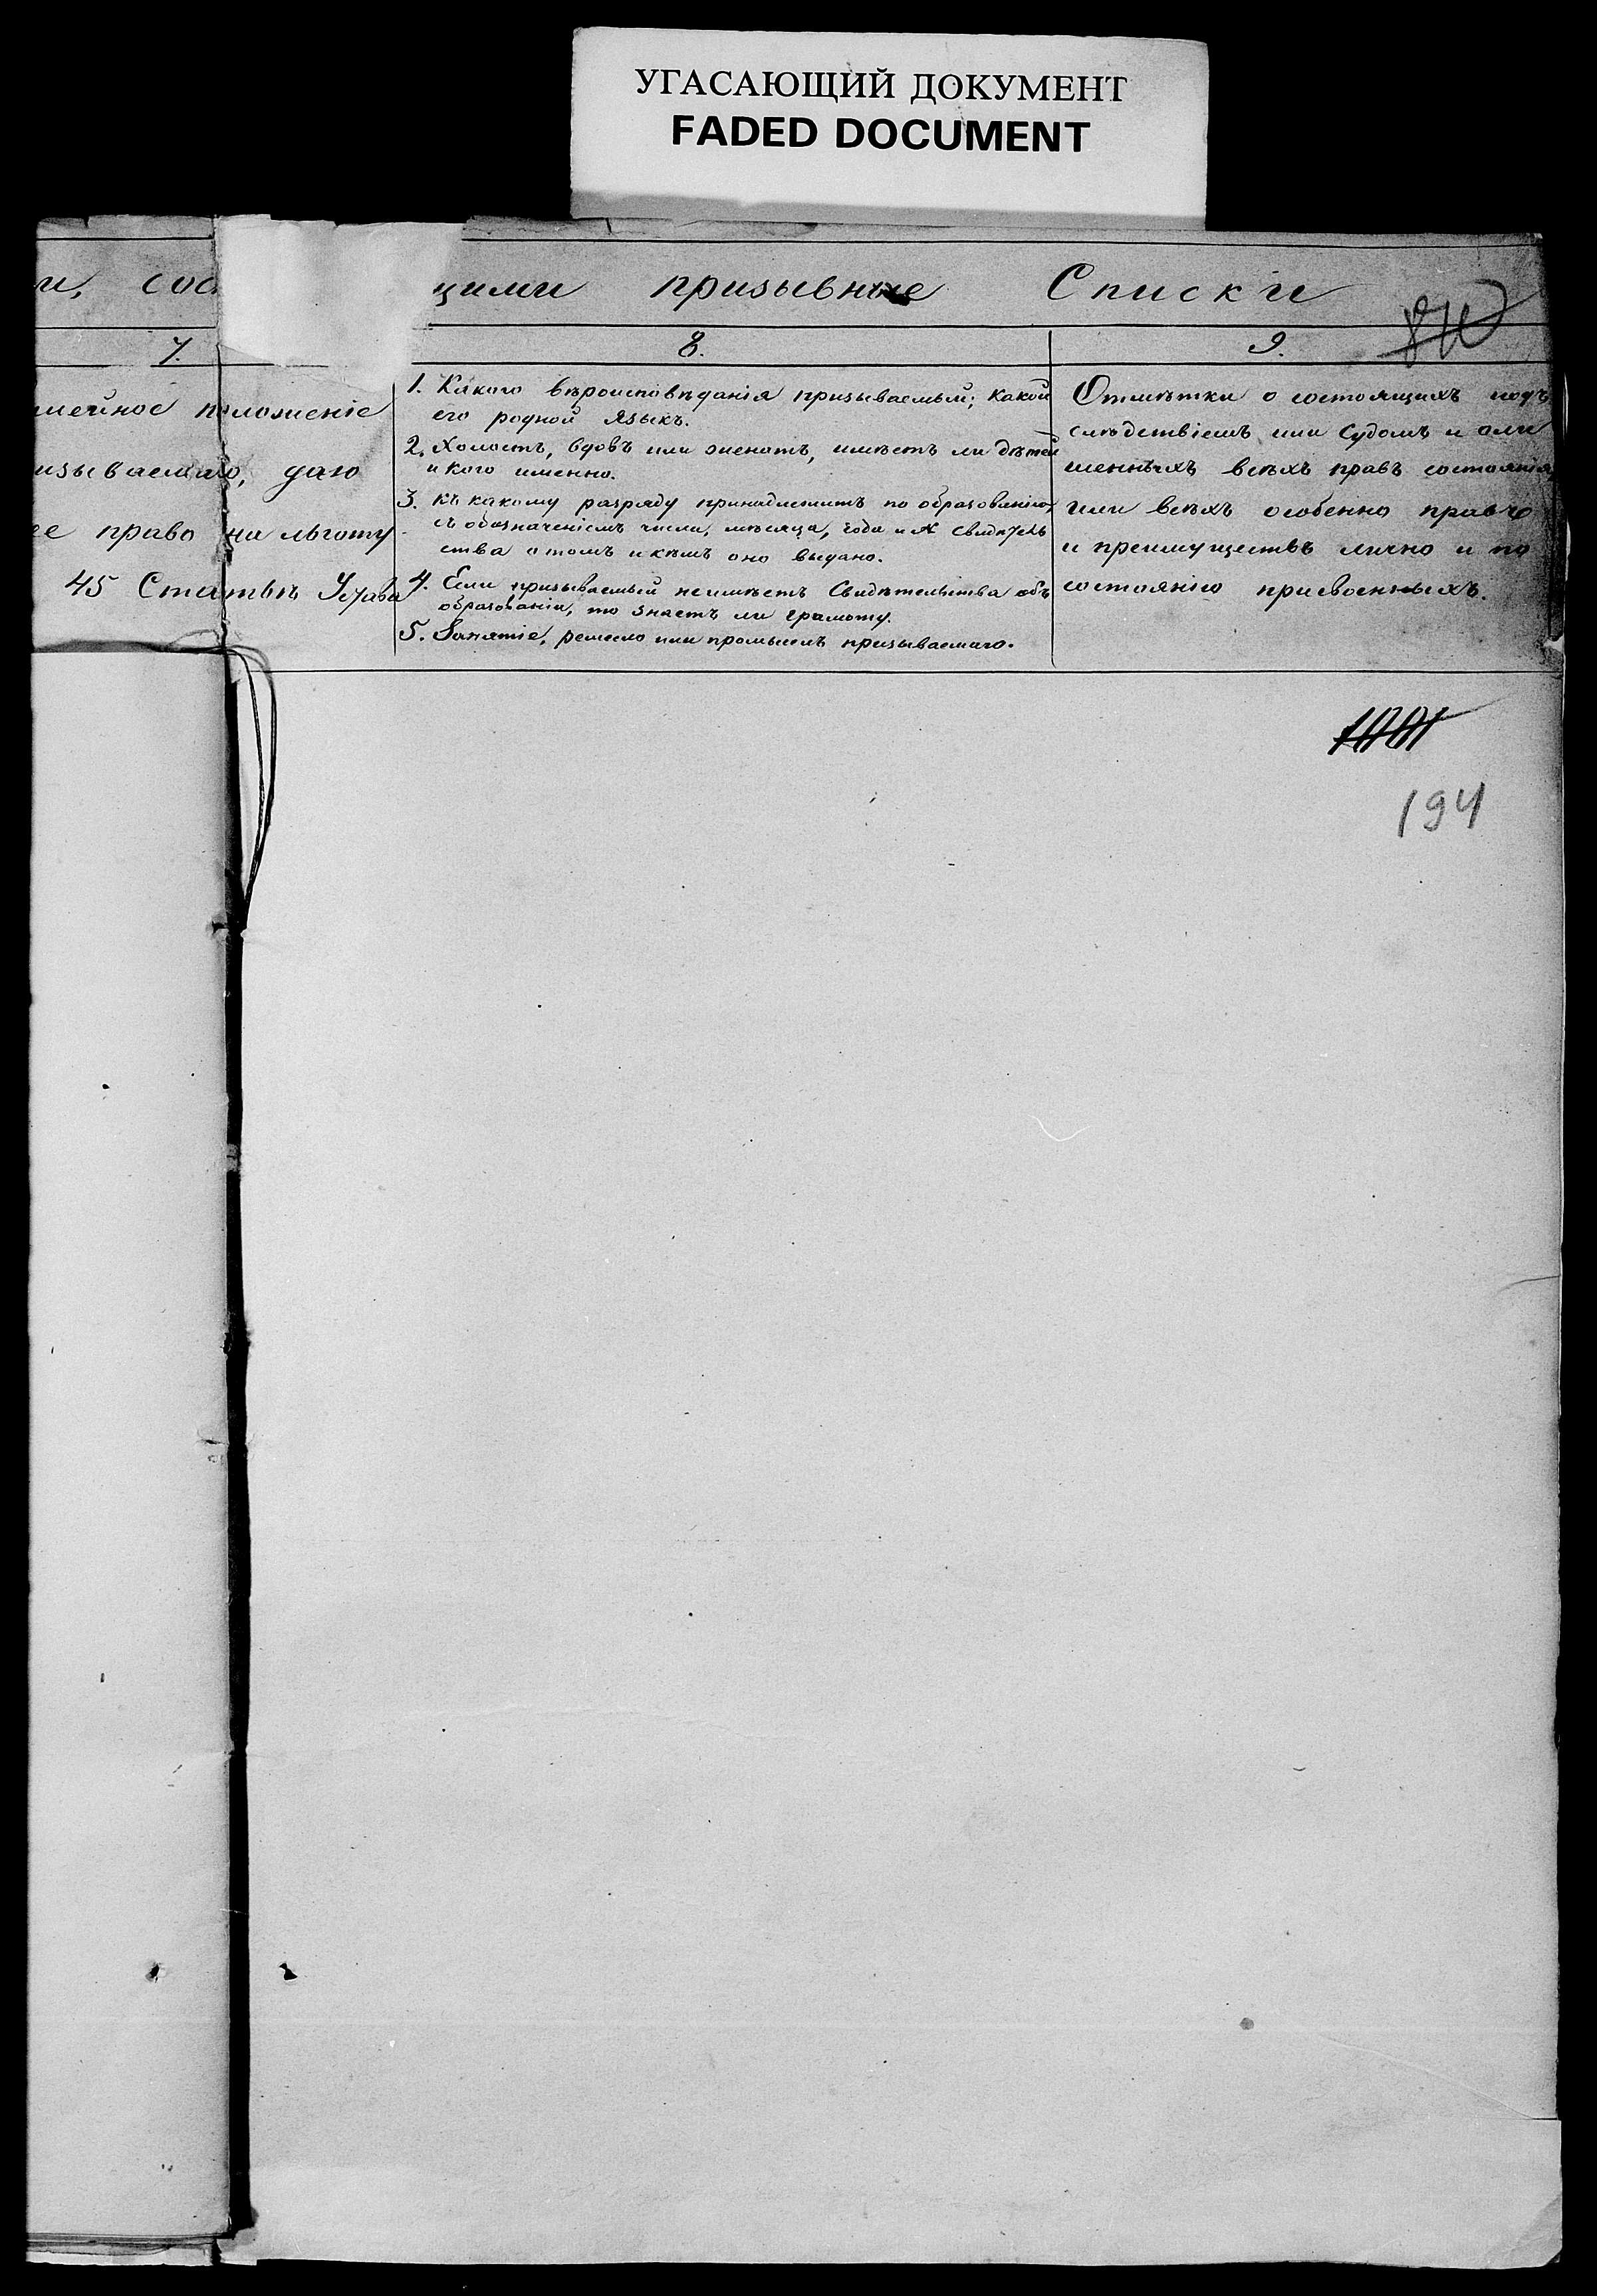 УГАСАЮЩИЙ ДОКУМЕНТ
FADED DOCUMENT
и, сос щими призывные Списки
7. 8. 9.
мейное положеніе
изываемаго, даю
ее право на льготу
45 Статьѣ Устава
1. Какого вѣроисповѣданія призываемый; какой
его родной языкъ.
2. Холостъ, вдовъ или женатъ, имѣетъ ли дѣтей
и кого именно.
3. Къ какому разряду принадлежитъ по образованію,
съ обозначеніемъ числа, мѣсяца, года и № Свидѣтель
ства о томъ и кѣмъ оно выдано.
4. Если призываемый неимѣетъ Свидѣтельства объ
образованіи, то знаетъ ли грамоту.
5. Занятіе, ремесло или промыселъ призываемаго.
Отмѣтки о состоящихъ подъ
слѣдствіемъ или судомъ и али
шенныхъ всѣхъ правъ состоянія
или всѣхъ особенно правъ
и преимуществъ лично и по
состоянію присвоенныхъ.
194